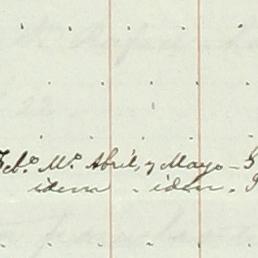 Feb.º M.º Abril, y Mayo -
idem . idem .